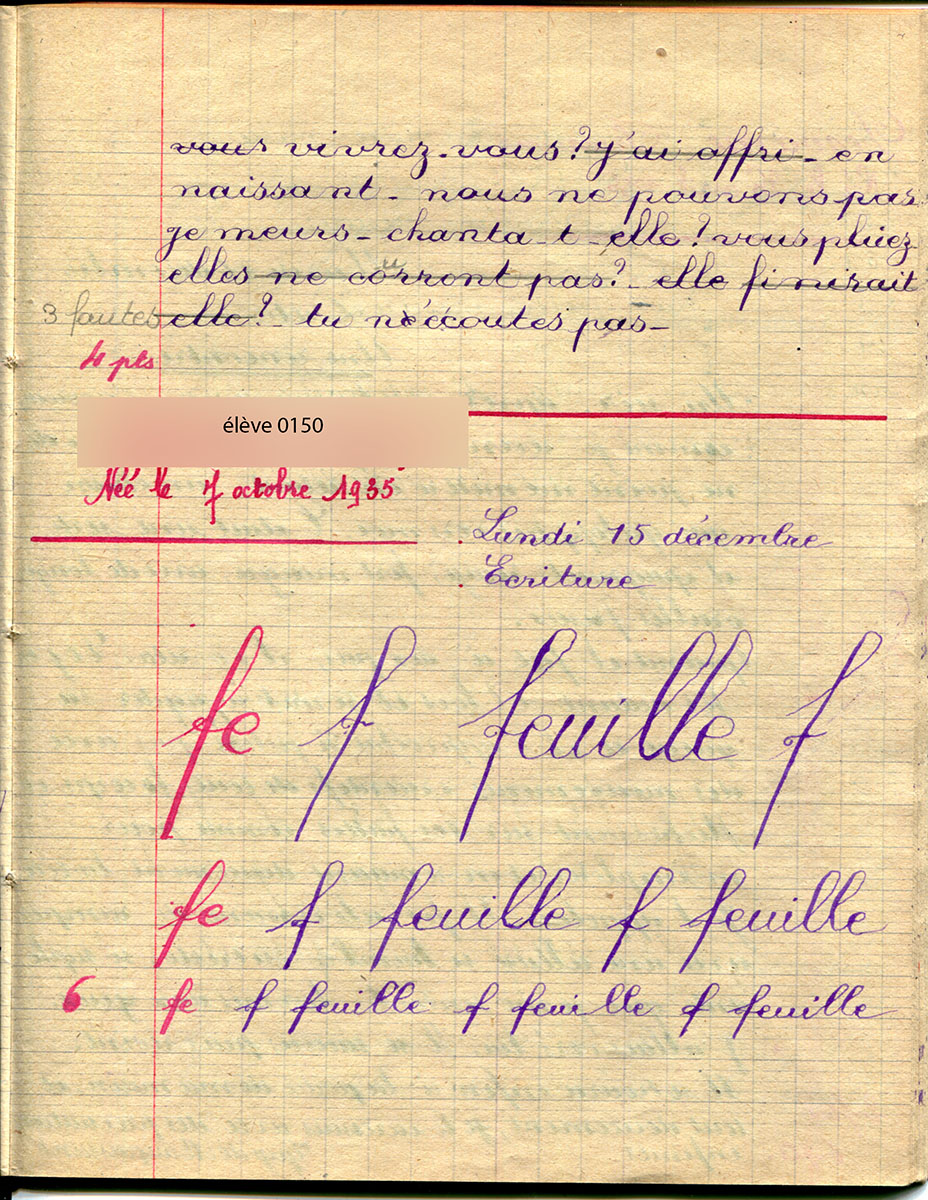 vous vivrez-vous? j'ai offri - en
naissant - nous ne pouvons pas
je meurs - chanta-t-elle? vous pliiez
elles ne courront pas? - elle finirait
3 fautes elle? - tu n'écoutes pas -
4 pts
élève 0150
Néé le 7 octobre 1935
Lundi 15 décembre
Ecriture
fe f feuille f
fe f feuille f feuille
6 fe f feuille f feuille f feuille